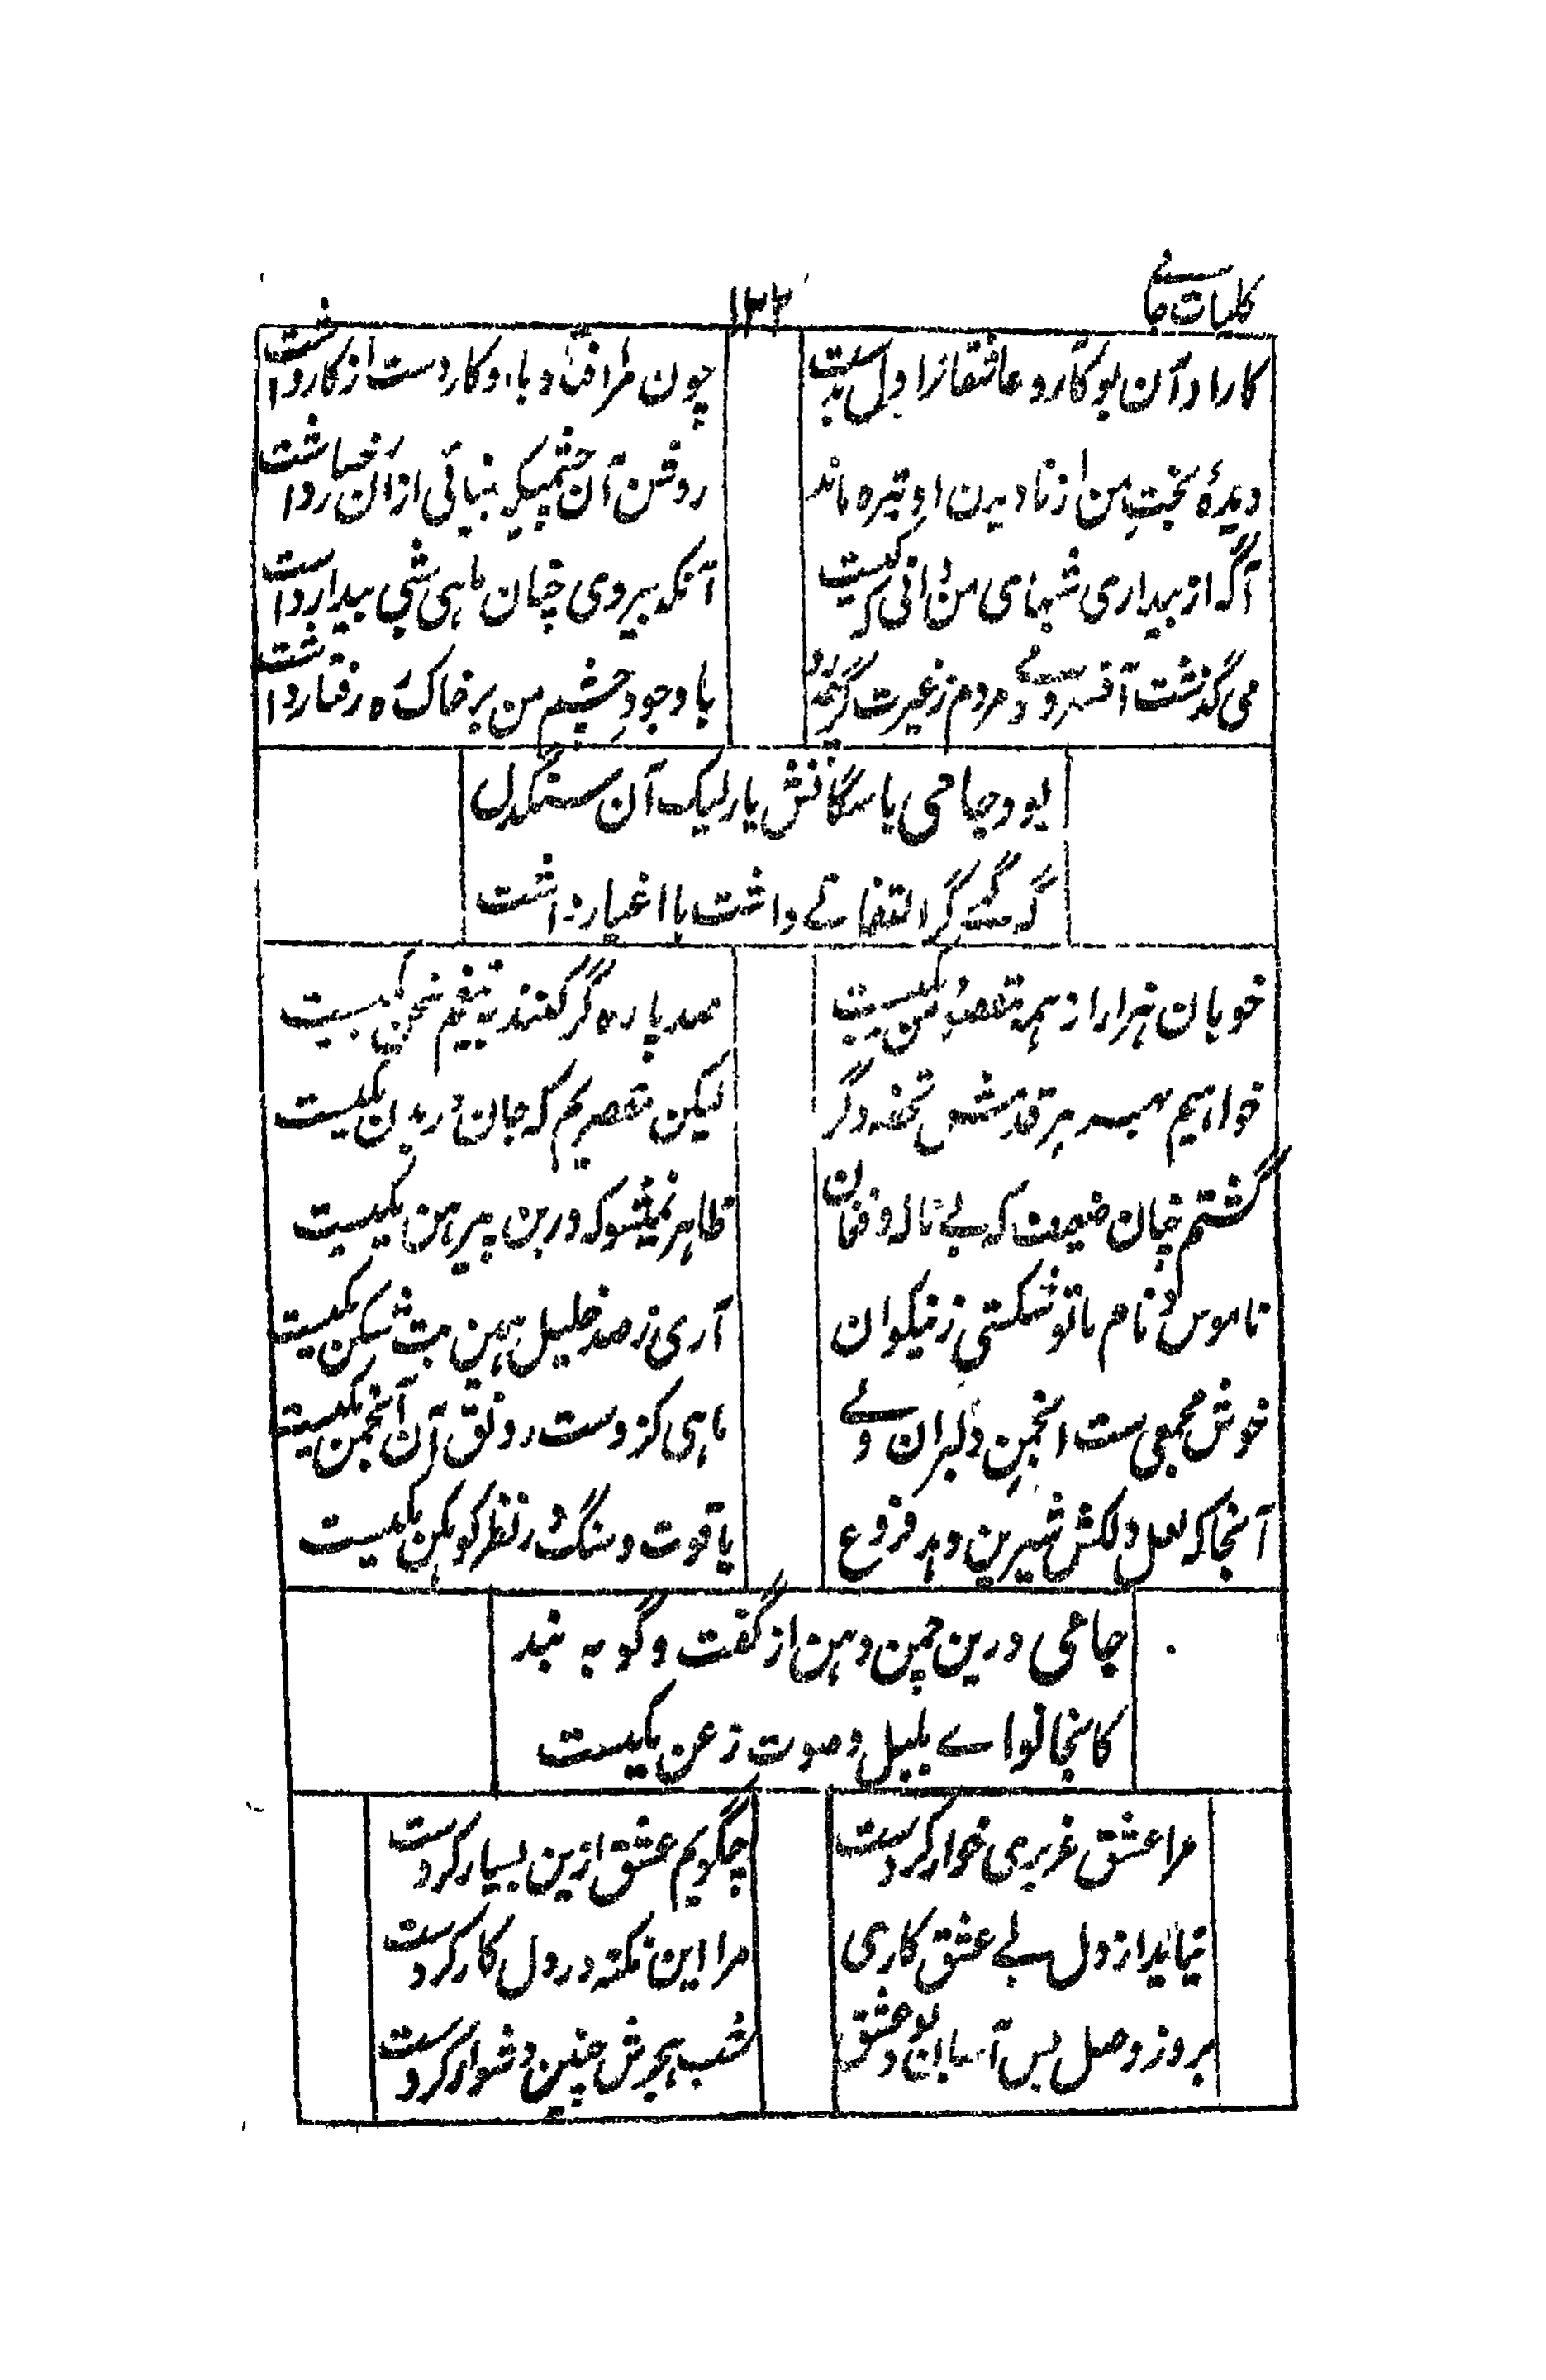 کلیات جامے
۱۳۲
کار او آن بود کارد عاشقانرا دل بدست
چون مرا افتاد با او کار دست از کار داشت
دیدۂ بختِ من از نادیدن او تیره ماند
روشن آن چشمیکه بینائی از آن رخسار داشت
آگه از بیداری شبهای من دانی که کیست
آنکه بیروی چنان ماهی شبی بیدار داشت
می گذشت آنسرو و مردم ز غیرت گرچه او
با وجودِ چشم من بر خاک ره رفتار داشت
بود جامی با سگانش یار لیک آن سنگدل
گه گهے گر التفاتے داشت با اغیار داشت
خوبان هزار و از همه مقصود من یکیست
صد پاره گر کنند به تیغم سخن یکیست
خواهیم بهر هر قدمش تحفۂ دگر
لیکن مقصریم که جان در بدن یکیست
گشتم چنان ضعیف که بے ناله و فغان
ظاهر نمیشود که درین پیرهن یکیست
ناموس و نام ما تو شکستی ز نیکوان
آری ز صد خلیل همین بت شکن یکیست
خوش مجمعی ست انجمنِ دلبران ولے
ماهی کزوست رونق آن انجمن یکیست
آنجا که لعل دلکش شیرین دهد فروغ
یاقوت و سنگ در نظر کوهکن یکیست
جامی درین چمن دهن از گفت و گو به بند
کانجا نواے بلبل و صوت زغن یکیست
مرا عشق عزیزی خوار کردست
چگویم عشق ازین بسیار کردست
نیاید از دل بے عشق کاری
مرا این نکته در دل کار کردست
بروز وصل بس آسان بود عشق
شب هجرش چنین دشوار کردست